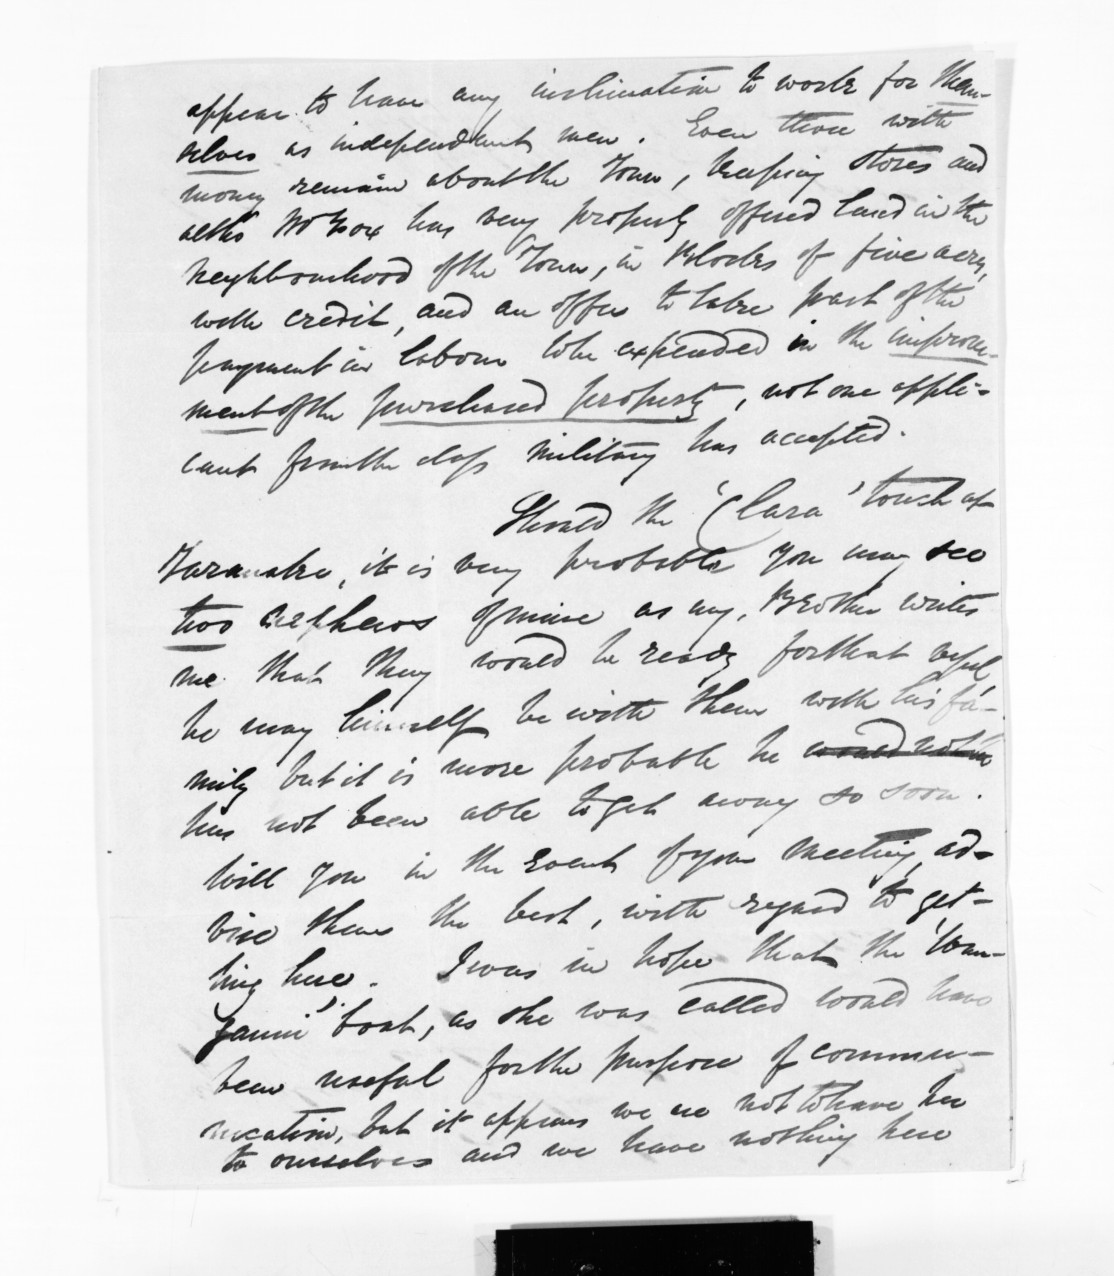 appear to have any inclination to work for them-
selves as independent men. Even those with
money remain about the Town, keeping stores and
altho' Mr Fox has very properly offered land in the
neighbourhood of the Town, in Blocks of five acres,
with credit, and an offer to take part of the
payment in labour to be expended in the improve-
ment of the purchased property, not one appli-
cant from the class military has accepted.
Should the 'Clara' touch at
Taranake, it is very probable you may see
two nephews of mine as my Brother writes
me that they would be ready for that vessel
he may himself be with them with his fa-
mily but it is more probable he would not be
has not been able to get away so soon.
Will you in the event of your meeting, ad-
vise them the best, with regard to get-
ting here. I was in hope that the 'Wan-
ganui' boat, as she was called would have
been useful for the purpose of commu-
nication, but it appears we are not to have her
to ourselves and we have nothing here